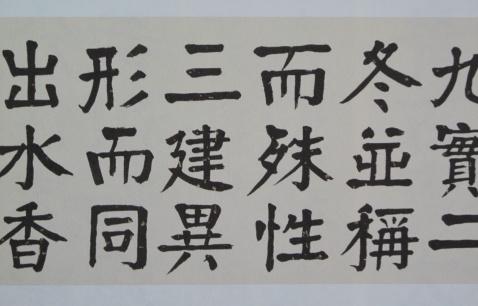 九實二
冬並稱
而殊性
三建異
形而同
出水香